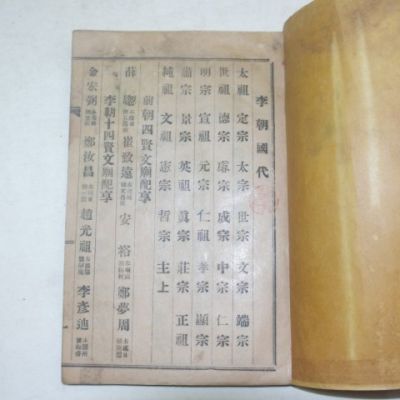 李朝國代
太祖 定宗 太宗 世宗 文宗 端宗
世祖 德宗 睿宗 成宗 中宗 仁宗
明宗 宣祖 元宗 仁祖 孝宗 顯宗
肅宗 景宗 英祖 眞宗 莊宗 正祖
純祖 文祖 憲宗 哲宗 主上
前朝四賢文廟配享
薛聰 崔致遠 安裕 鄭夢周
李朝十四賢文廟配享
金宏弼 鄭汝昌 趙光祖 李彦迪